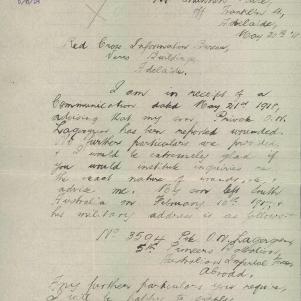 Franklin St
Adelaide,
May 20th '18
Red Cross Information Bureau,
Verco Buildings
Adelaide.
I am in receipt of a
Communication dated May 21st 1918,
advising that my son, Private O.N.
has been reported wounded.
No further particulars
& I would be extremely glad if
you would institute inquiries as
the exact nature of wounds, &
advise me. My son left South
Australia on February 10th
his military address is as follows
No 3504 Pte O.N.
5th Pioneers Battalion
Australian Imperial Forces
Abroad.
Any further particulars you require
I will be